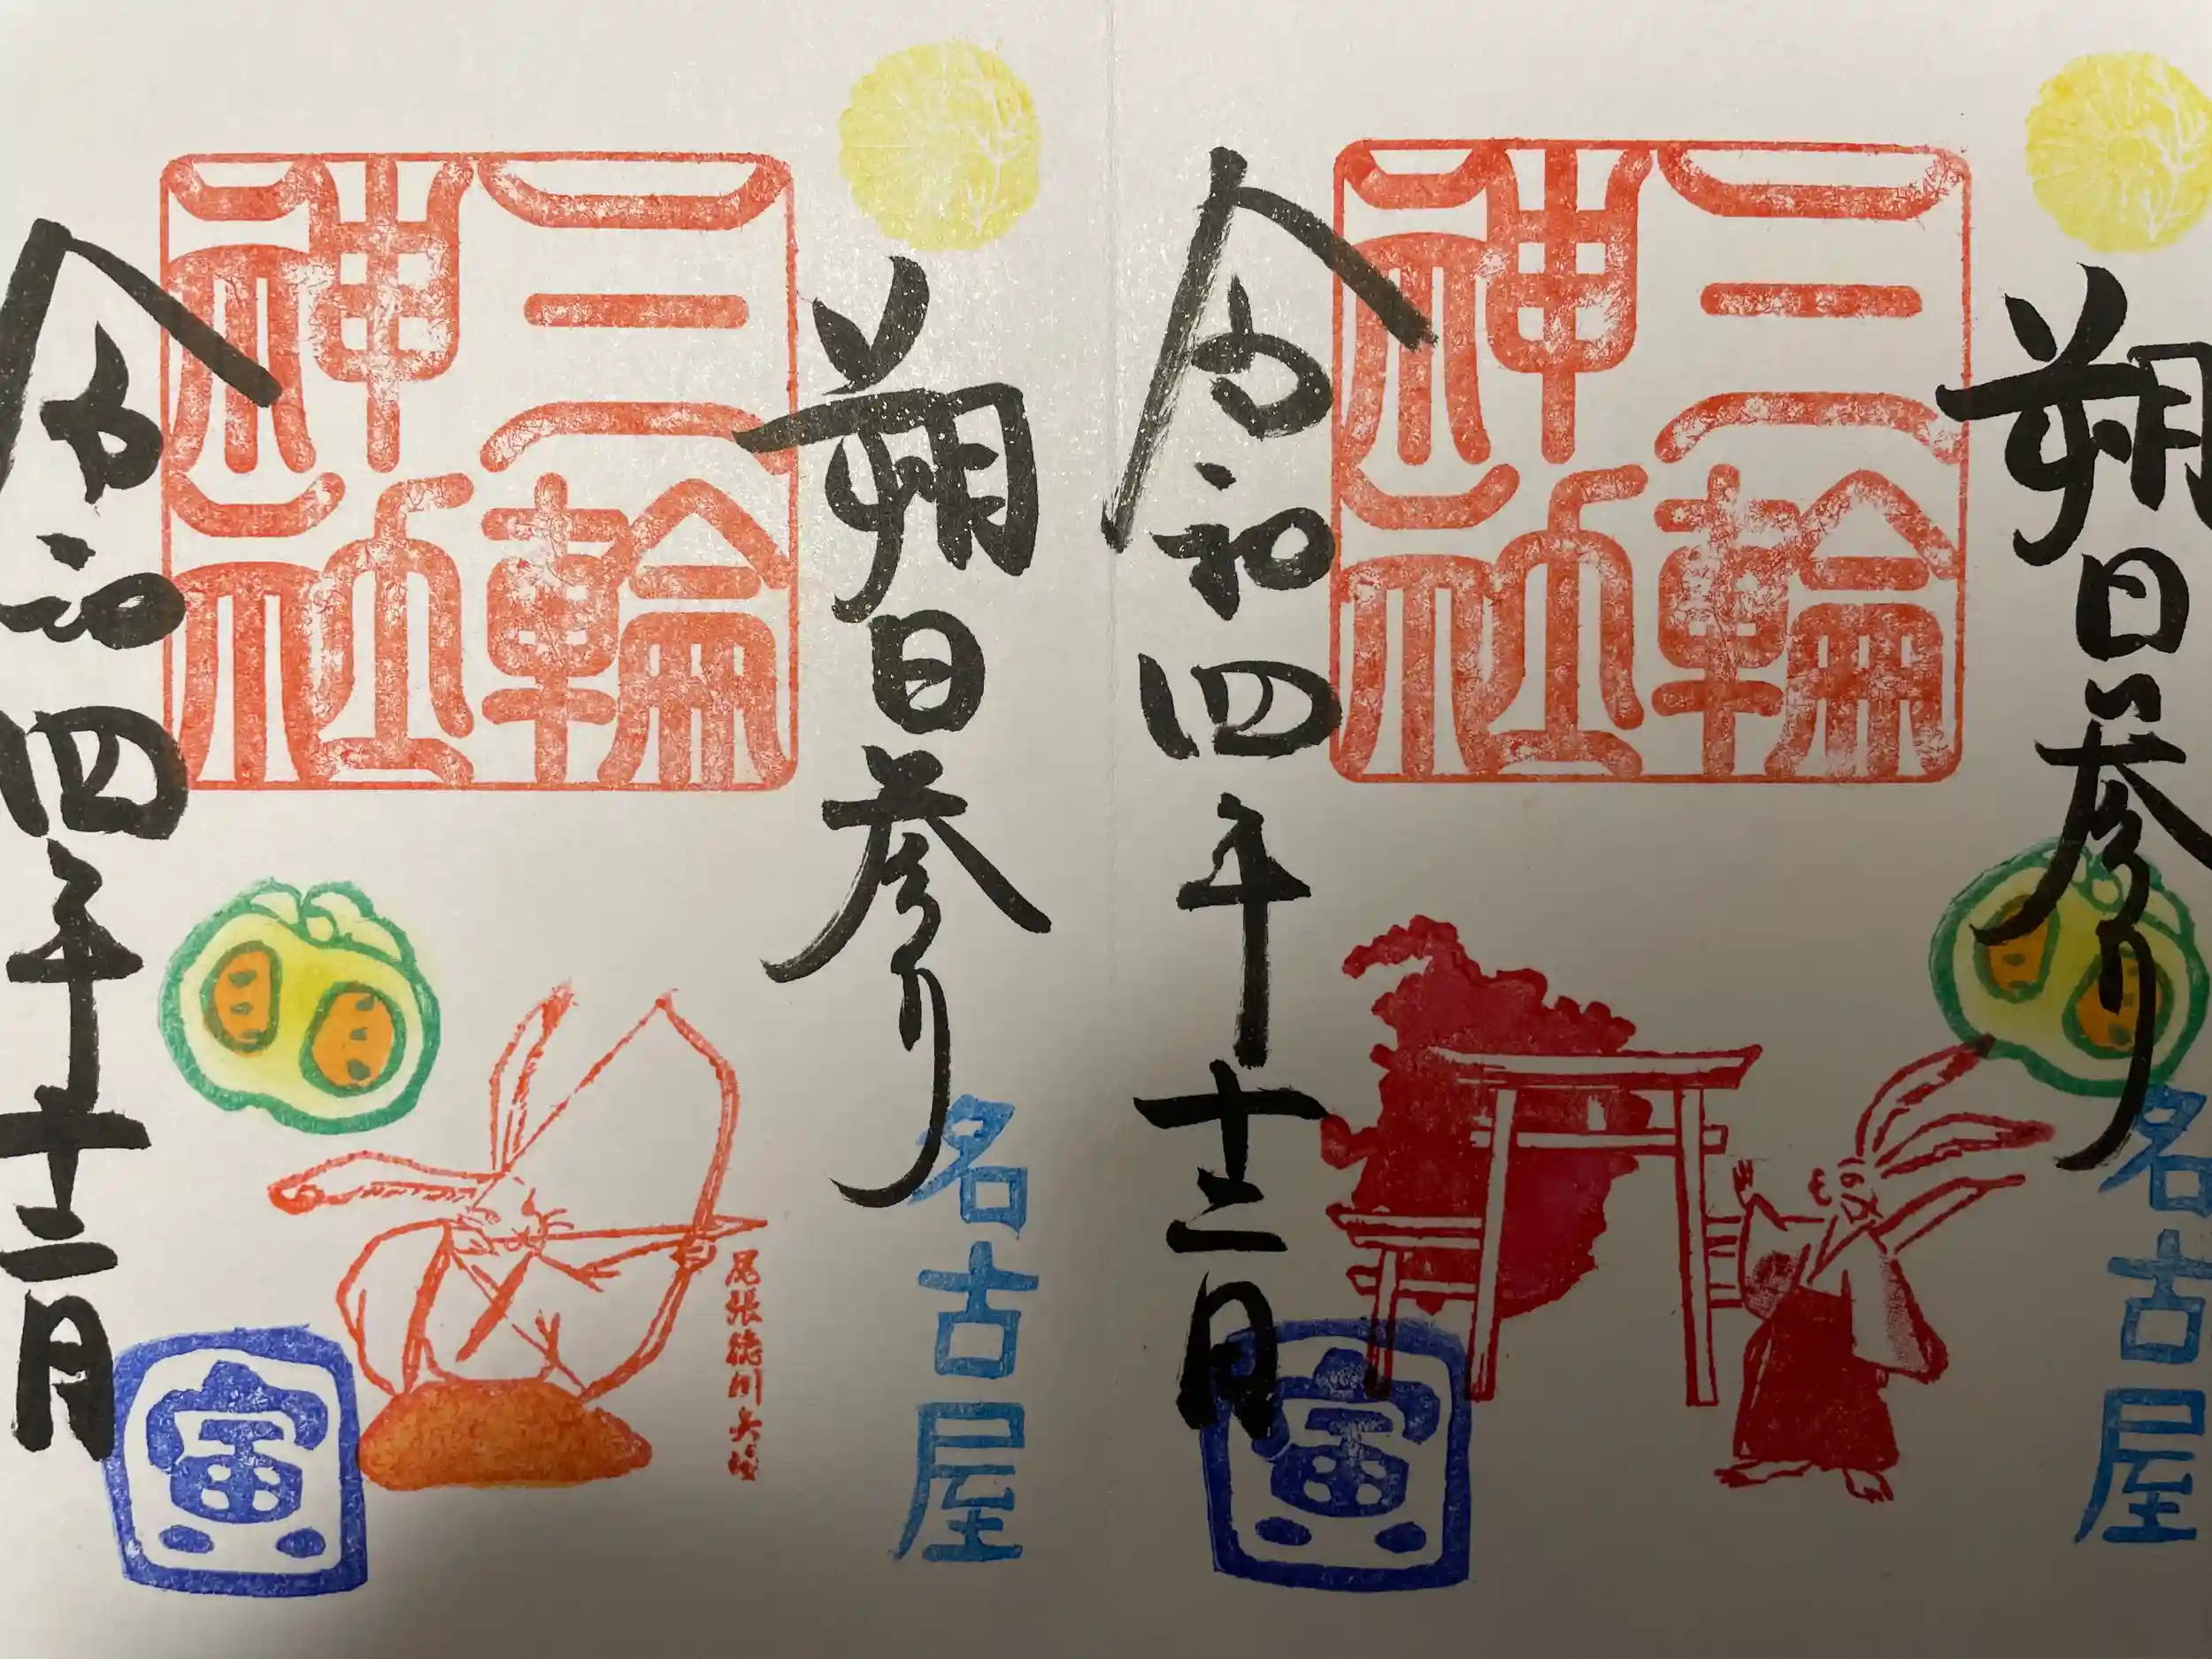 朔日参り
名古屋
三輪
神社
尾張徳川兵法
令和四年十二月
寅
朔日参り
名古屋
三輪
神社
令和四年十二月
寅